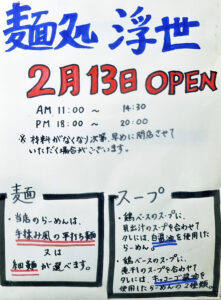 麺処 浮世
2月13日 OPEN
AM 11:00 ～ 14:30
PM 18:00 ～ 20:00
※ 材料がなくなり次第、早めに閉店させて
いただく場合がございます。
麺
・当店のらーめんは、
手揉み風の平打ち麺
又は
細麺が選べます。
スープ
・鶏ベースのスープに、
貝出汁のスープを合わせて
タレには、白醤油を使用した
らーめん。
・鶏ベースのスープに、
煮干しのスープを合わせて
タレには、キッコーゴ醤油を
使用したらーめんの2種類。